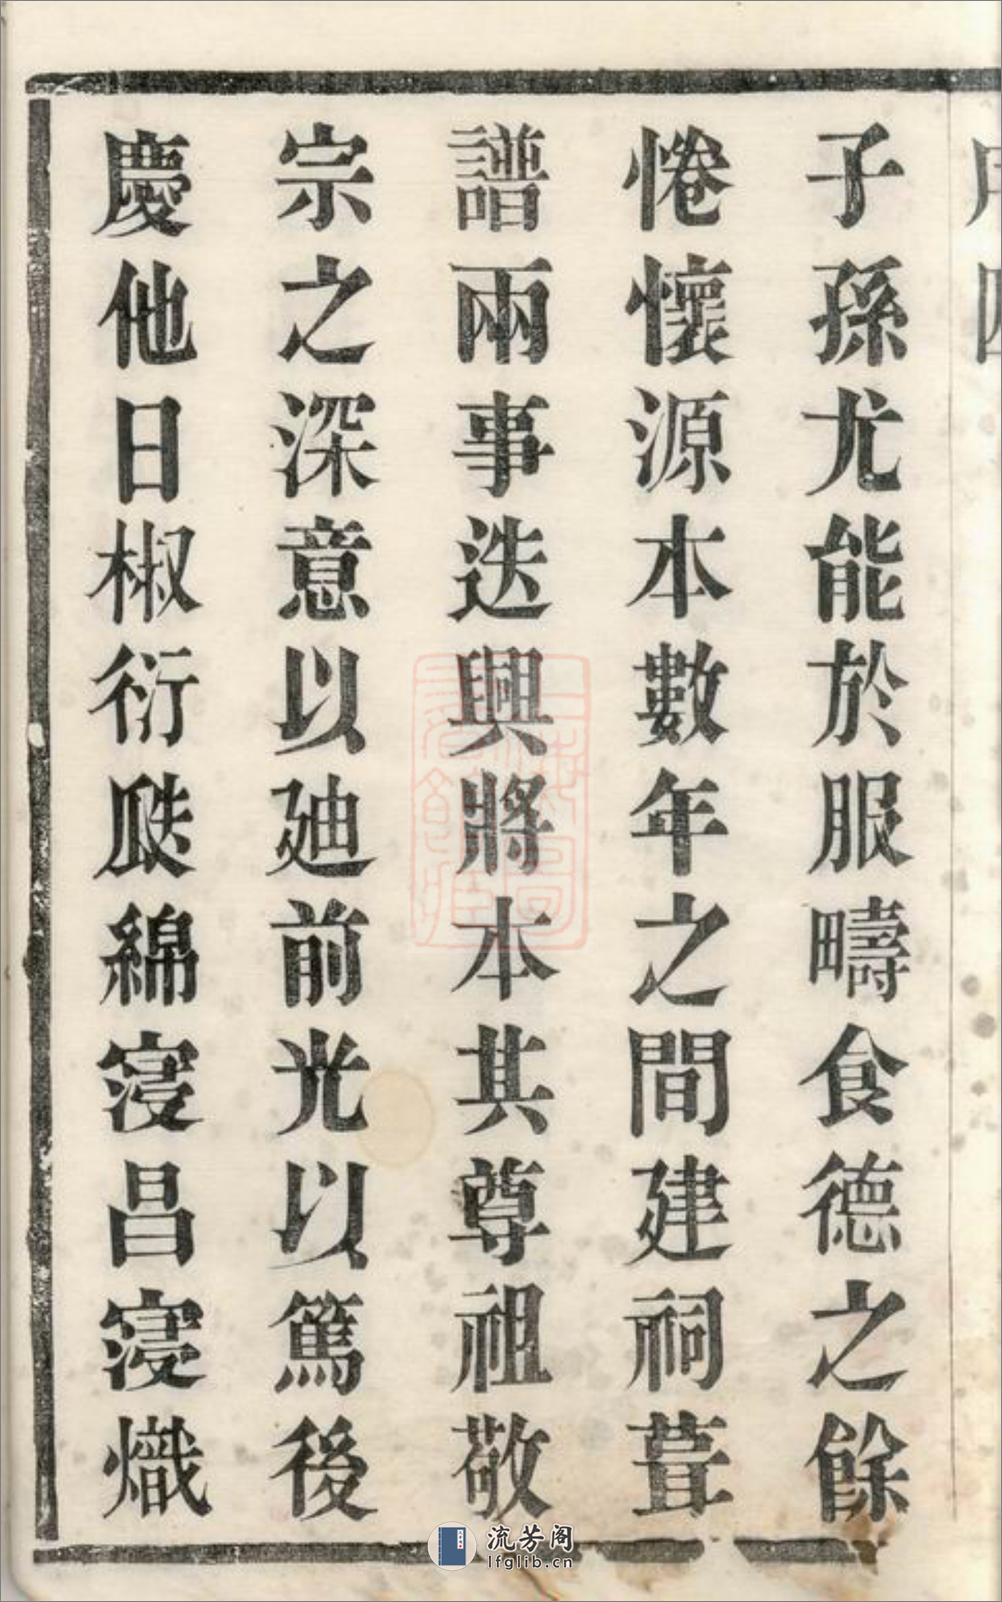 子孫尤能於服疇食德之餘
惓懷源本數年之間建祠葺
譜兩事迭興將本其尊祖敬
宗之深意以廸前光以篤後
慶他日椒衍瓞綿寖昌寖熾
流芳阁
lfglib.cn